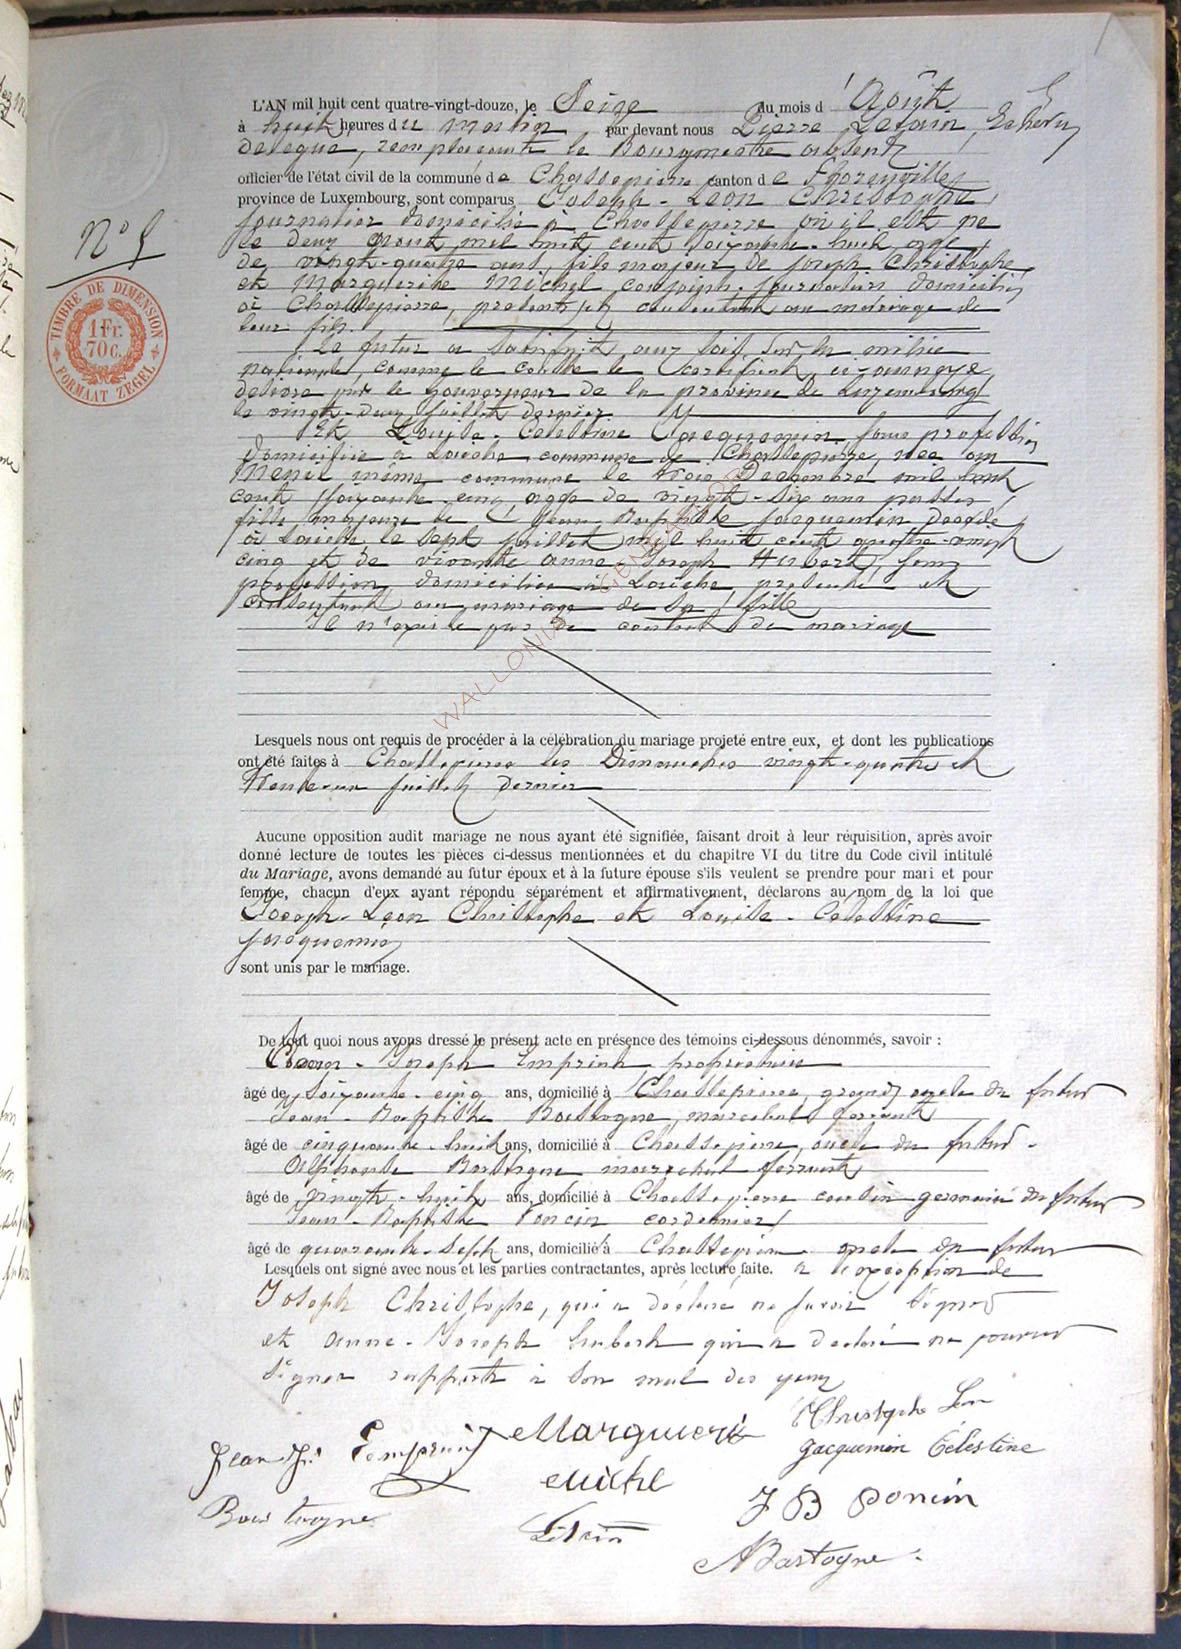 L'AN mil huit cent quatre-vingt-douze, le Seize du mois d'Août
à huit heures du matin par devant nous Pierre Echevin
délégué, remplaçant le Bourgmestre absent
officier de l'état civil de la commune de Chassepierre canton de Florenville
province de Luxembourg, sont comparus Joseph-Léon Christophe
journalier domicilié à Chassepierre où il est né
le deux Août mil huit cent soixante-huit, âgé
de vingt-quatre ans, fils majeur de Joseph Christophe
et Marguerite Michel, conjoints journaliers domiciliés
à Chassepierre, présents et consentant au mariage de
leur fils.
Le futur a satisfait aux lois sur la milice
nationale, comme le constate le certificat ci-annexé
délivré par le gouverneur de la province de Luxembourg
le vingt-deux juillet dernier
Et Louise-Célestine Jacquemin sans profession
domiciliée à Laiche commune de Chassepierre, née au
Menil même commune le trois Décembre mil huit
cent soixante-cinq âgée de vingt-six ans passés
fille majeure de Jean Baptiste Jacquemin décédé
à Laiche le sept juillet mil huit cent quatre-vingt
cinq et de vivante Anne Joseph Hubert, sans
profession domiciliée à Laiche présente et
consentant au mariage de sa fille
Il n'existe pas de contrat de mariage
N° 5
TIMBRE DE DIMENSION
1 Fr.
70 C.
FORMAAT ZEGEL
WALLONIE GENEALOGIE
Lesquels nous ont requis de procéder à la célébration du mariage projeté entre eux, et dont les publications
ont été faites à Chassepierre les Dimanches vingt-quatre et
trente-un juillet dernier
Aucune opposition audit mariage ne nous ayant été signifiée, faisant droit à leur réquisition, après avoir
donné lecture de toutes les pièces ci-dessus mentionnées et du chapitre VI du titre du Code civil intitulé
du Mariage, avons demandé au futur époux et à la future épouse s'ils veulent se prendre pour mari et pour
femme, chacun d'eux ayant répondu séparément et affirmativement, déclarons au nom de la loi que
Joseph-Léon Christophe et Louise-Célestine
Jacquemin
sont unis par le mariage.
De tout quoi nous avons dressé le présent acte en présence des témoins ci-dessous dénommés, savoir :
Jean-Joseph propriétaire
âgé de soixante-cinq ans, domicilié à Chassepierre, grand oncle du futur
Jean-Baptiste Bastogne, maréchal ferrant
âgé de cinquante-huit ans, domicilié à Chassepierre, oncle du futur-
Alphonse Bastogne maréchal ferrant
âgé de vingt-huit ans, domicilié à Chassepierre cousin germain du futur
Jean-Baptiste Poncin cordonnier
âgé de quarante-sept ans, domicilié à Chassepierre oncle du futur
Lesquels ont signé avec nous et les parties contractantes, après lecture faite. à l'exception de
Joseph Christophe, qui a déclaré ne savoir signer
et Anne-Joseph Hubert qui a déclaré ne pouvoir
signer rapport à son mal des yeux
Christophe Léon
Marguerite
Jean Jh.
Jacquemin Célestine
Michel
J B Poncin
Bastogne
A Bastogne.